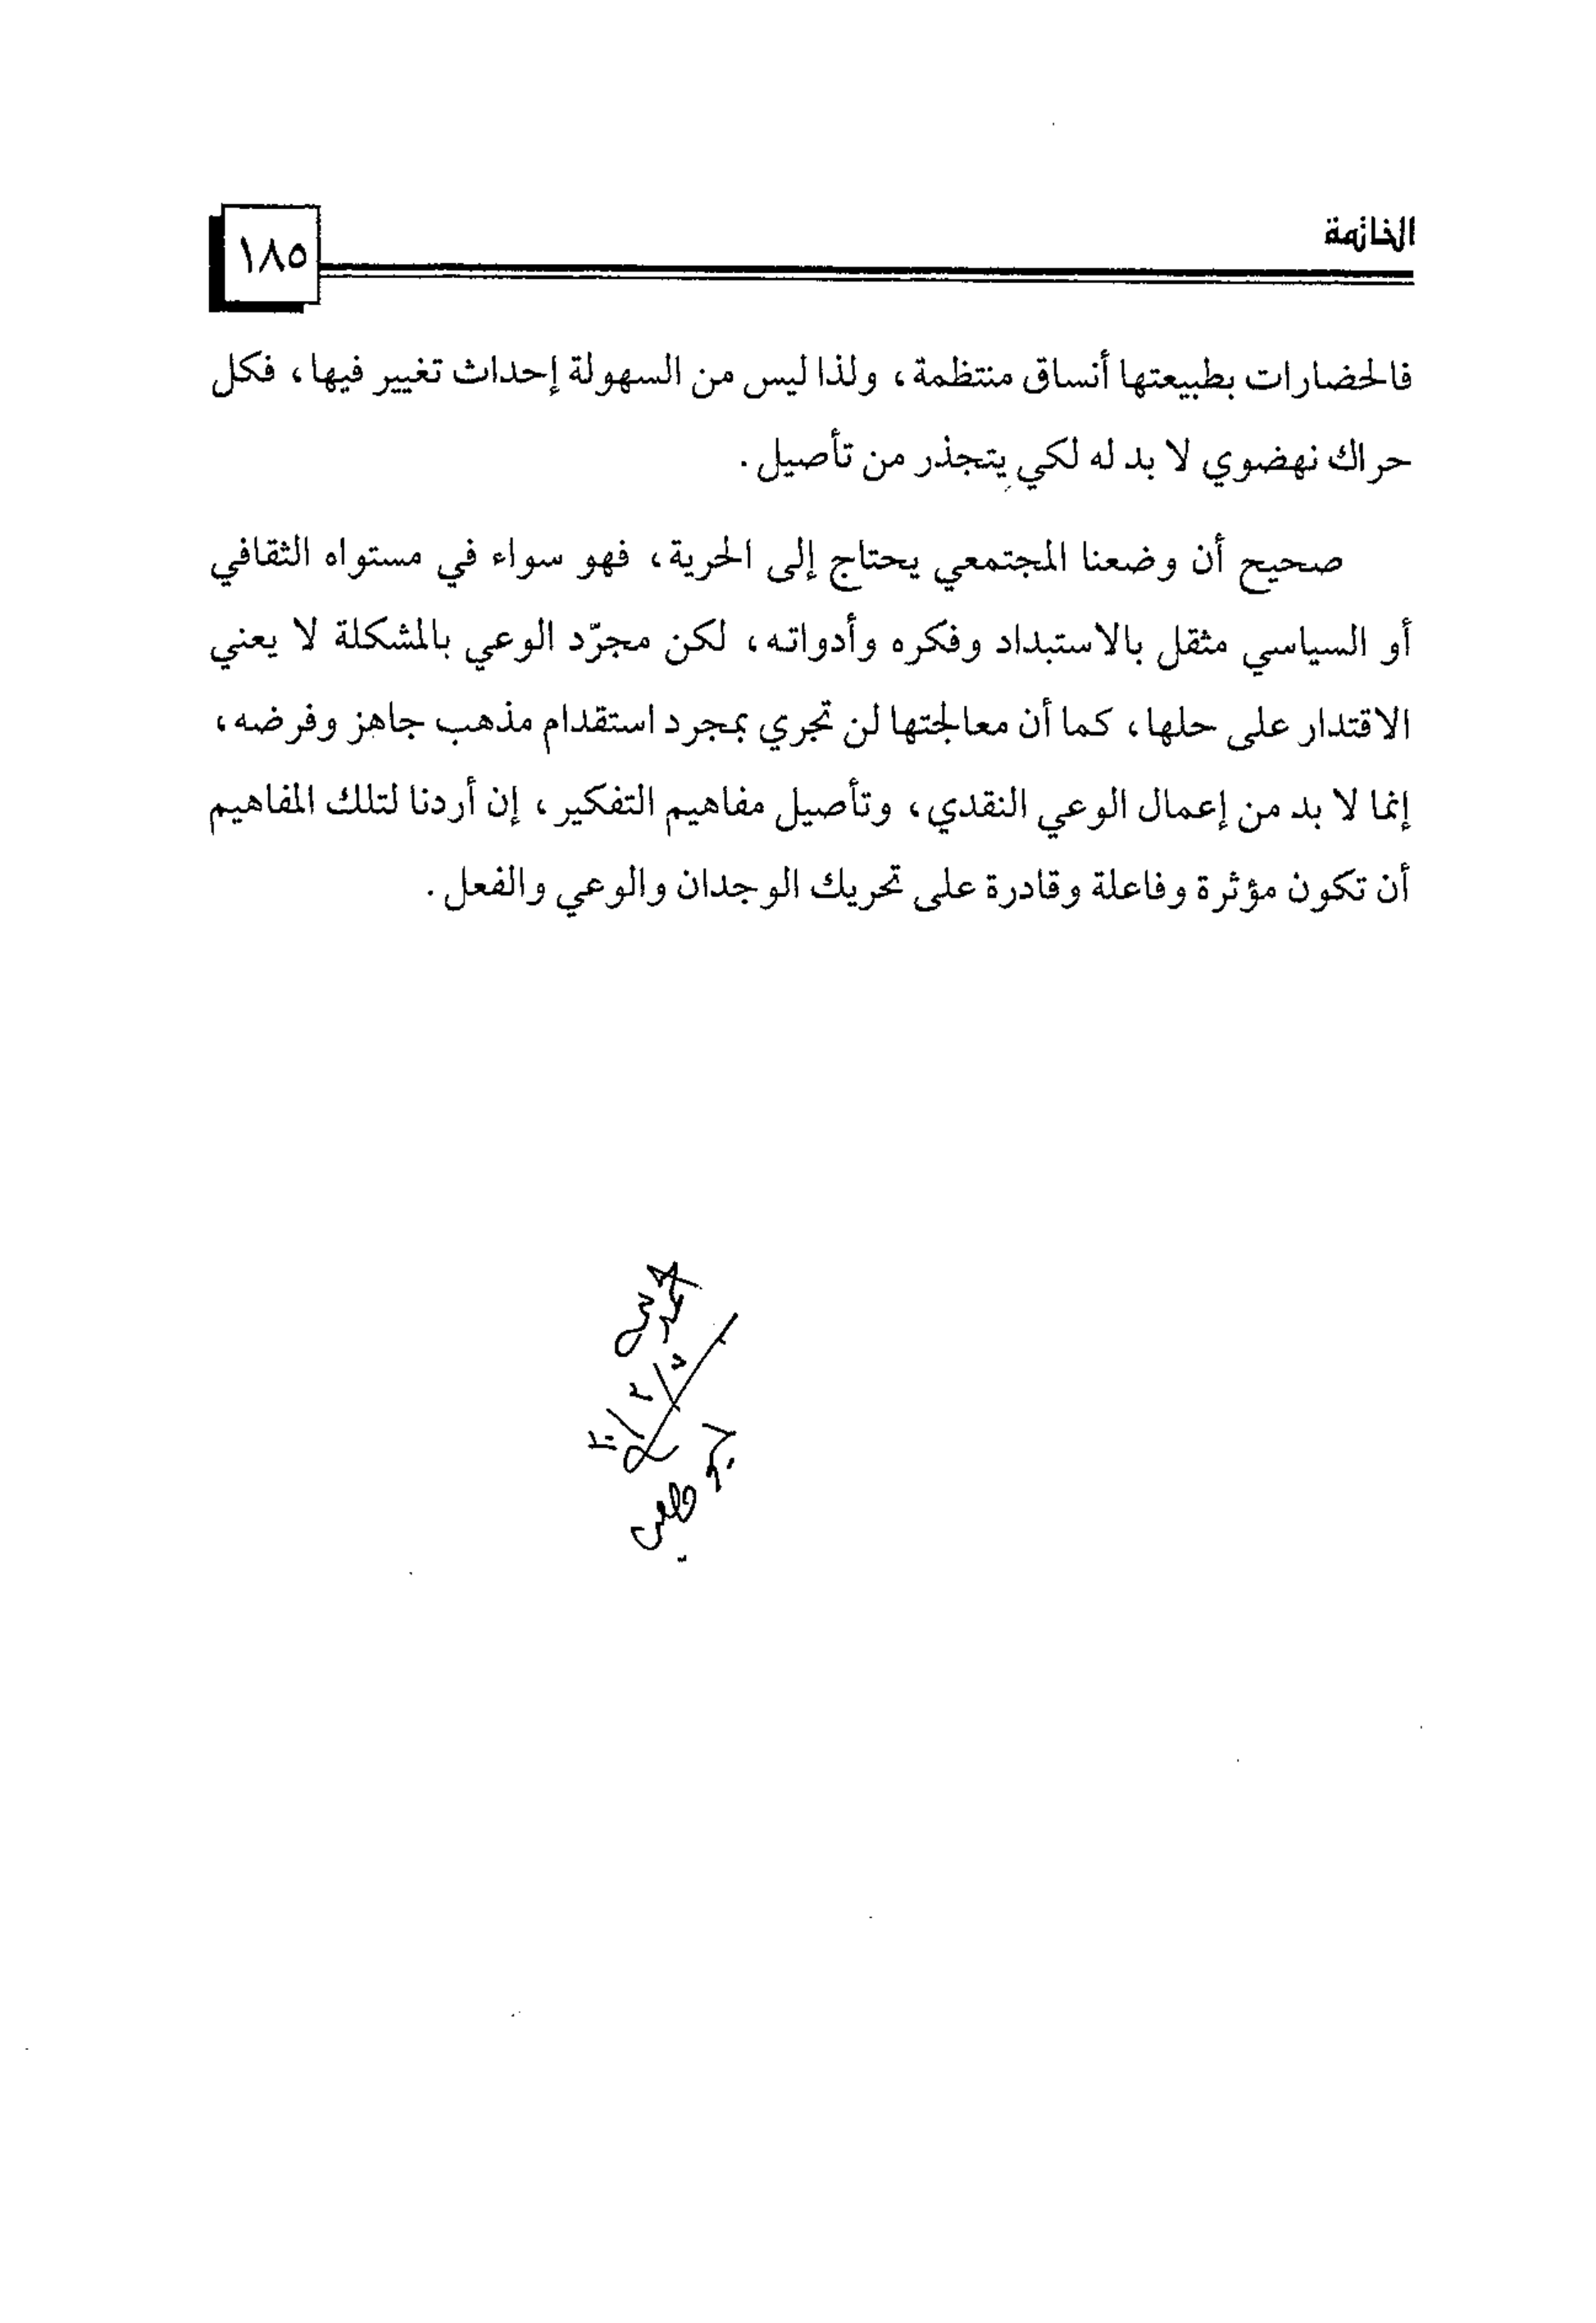 الخاتمة
١٨٥
فالحضارات بطبيعتها أنساق منتظمة، ولذا ليس من السهولة إحداث تغيير فيها، فكل
حراك نهضوي لا بد له لكي يتجذر من تأصيل.
صحيح أن وضعنا المجتمعي يحتاج إلى الحرية، فهو سواء في مستواه الثقافي
أو السياسي مثقل بالاستبداد وفكره وأدواته، لكن مجرّد الوعي بالمشكلة لا يعني
الاقتدار على حلها، كما أن معالجتها لن تجري بمجرد استقدام مذهب جاهز وفرضه،
إنما لا بد من إعمال الوعي النقدي، وتأصيل مفاهيم التفكير، إن أردنا لتلك المفاهيم
أن تكون مؤثرة وفاعلة وقادرة على تحريك الوجدان والوعي والفعل.